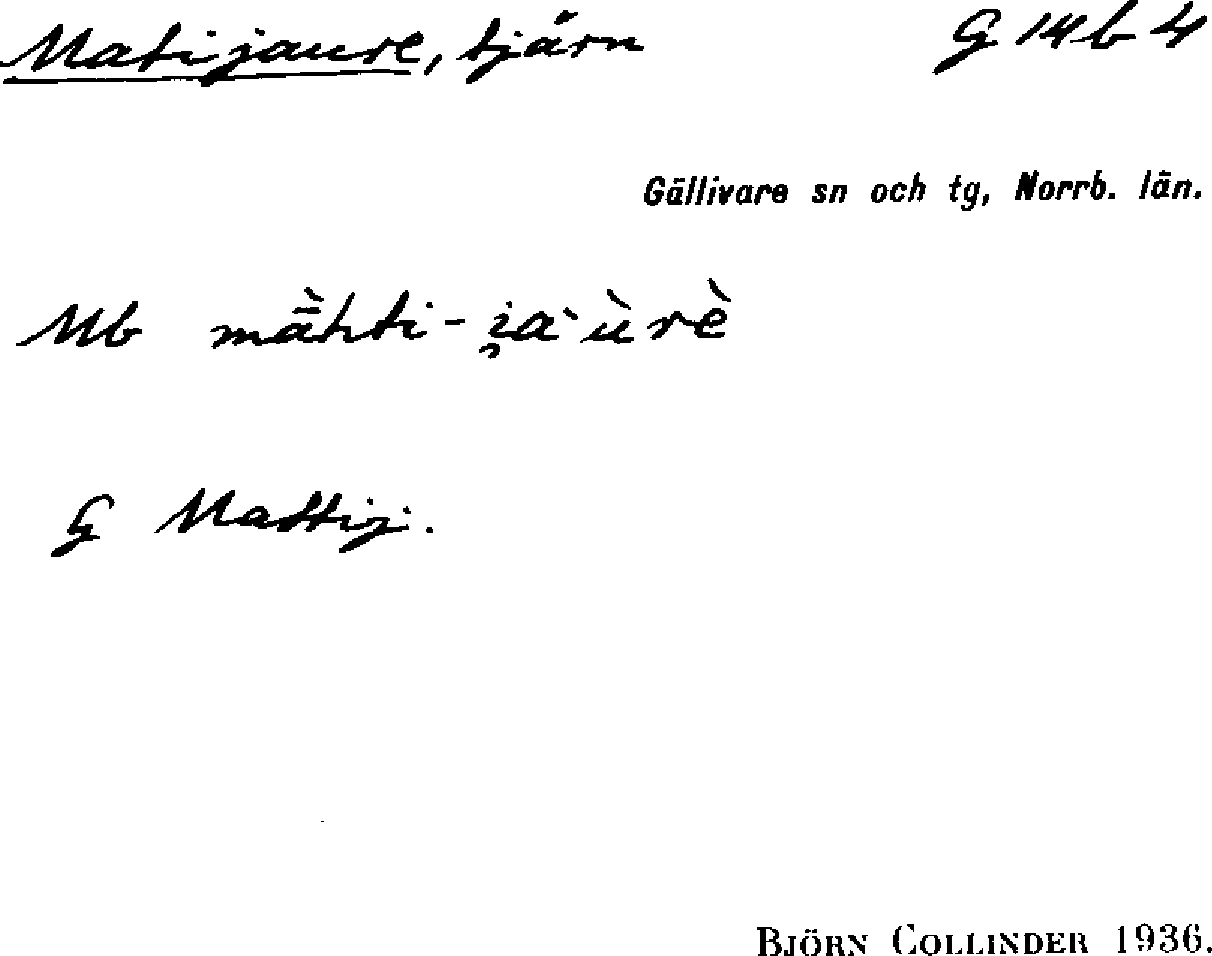 Matijaure, tjärn G 14 b 4
Gällivare sn och tg, Norrb. län.
Nb mā̀hti-i̯a`ùrè
G Mattij.
BJÖRN COLLINDER 1936.